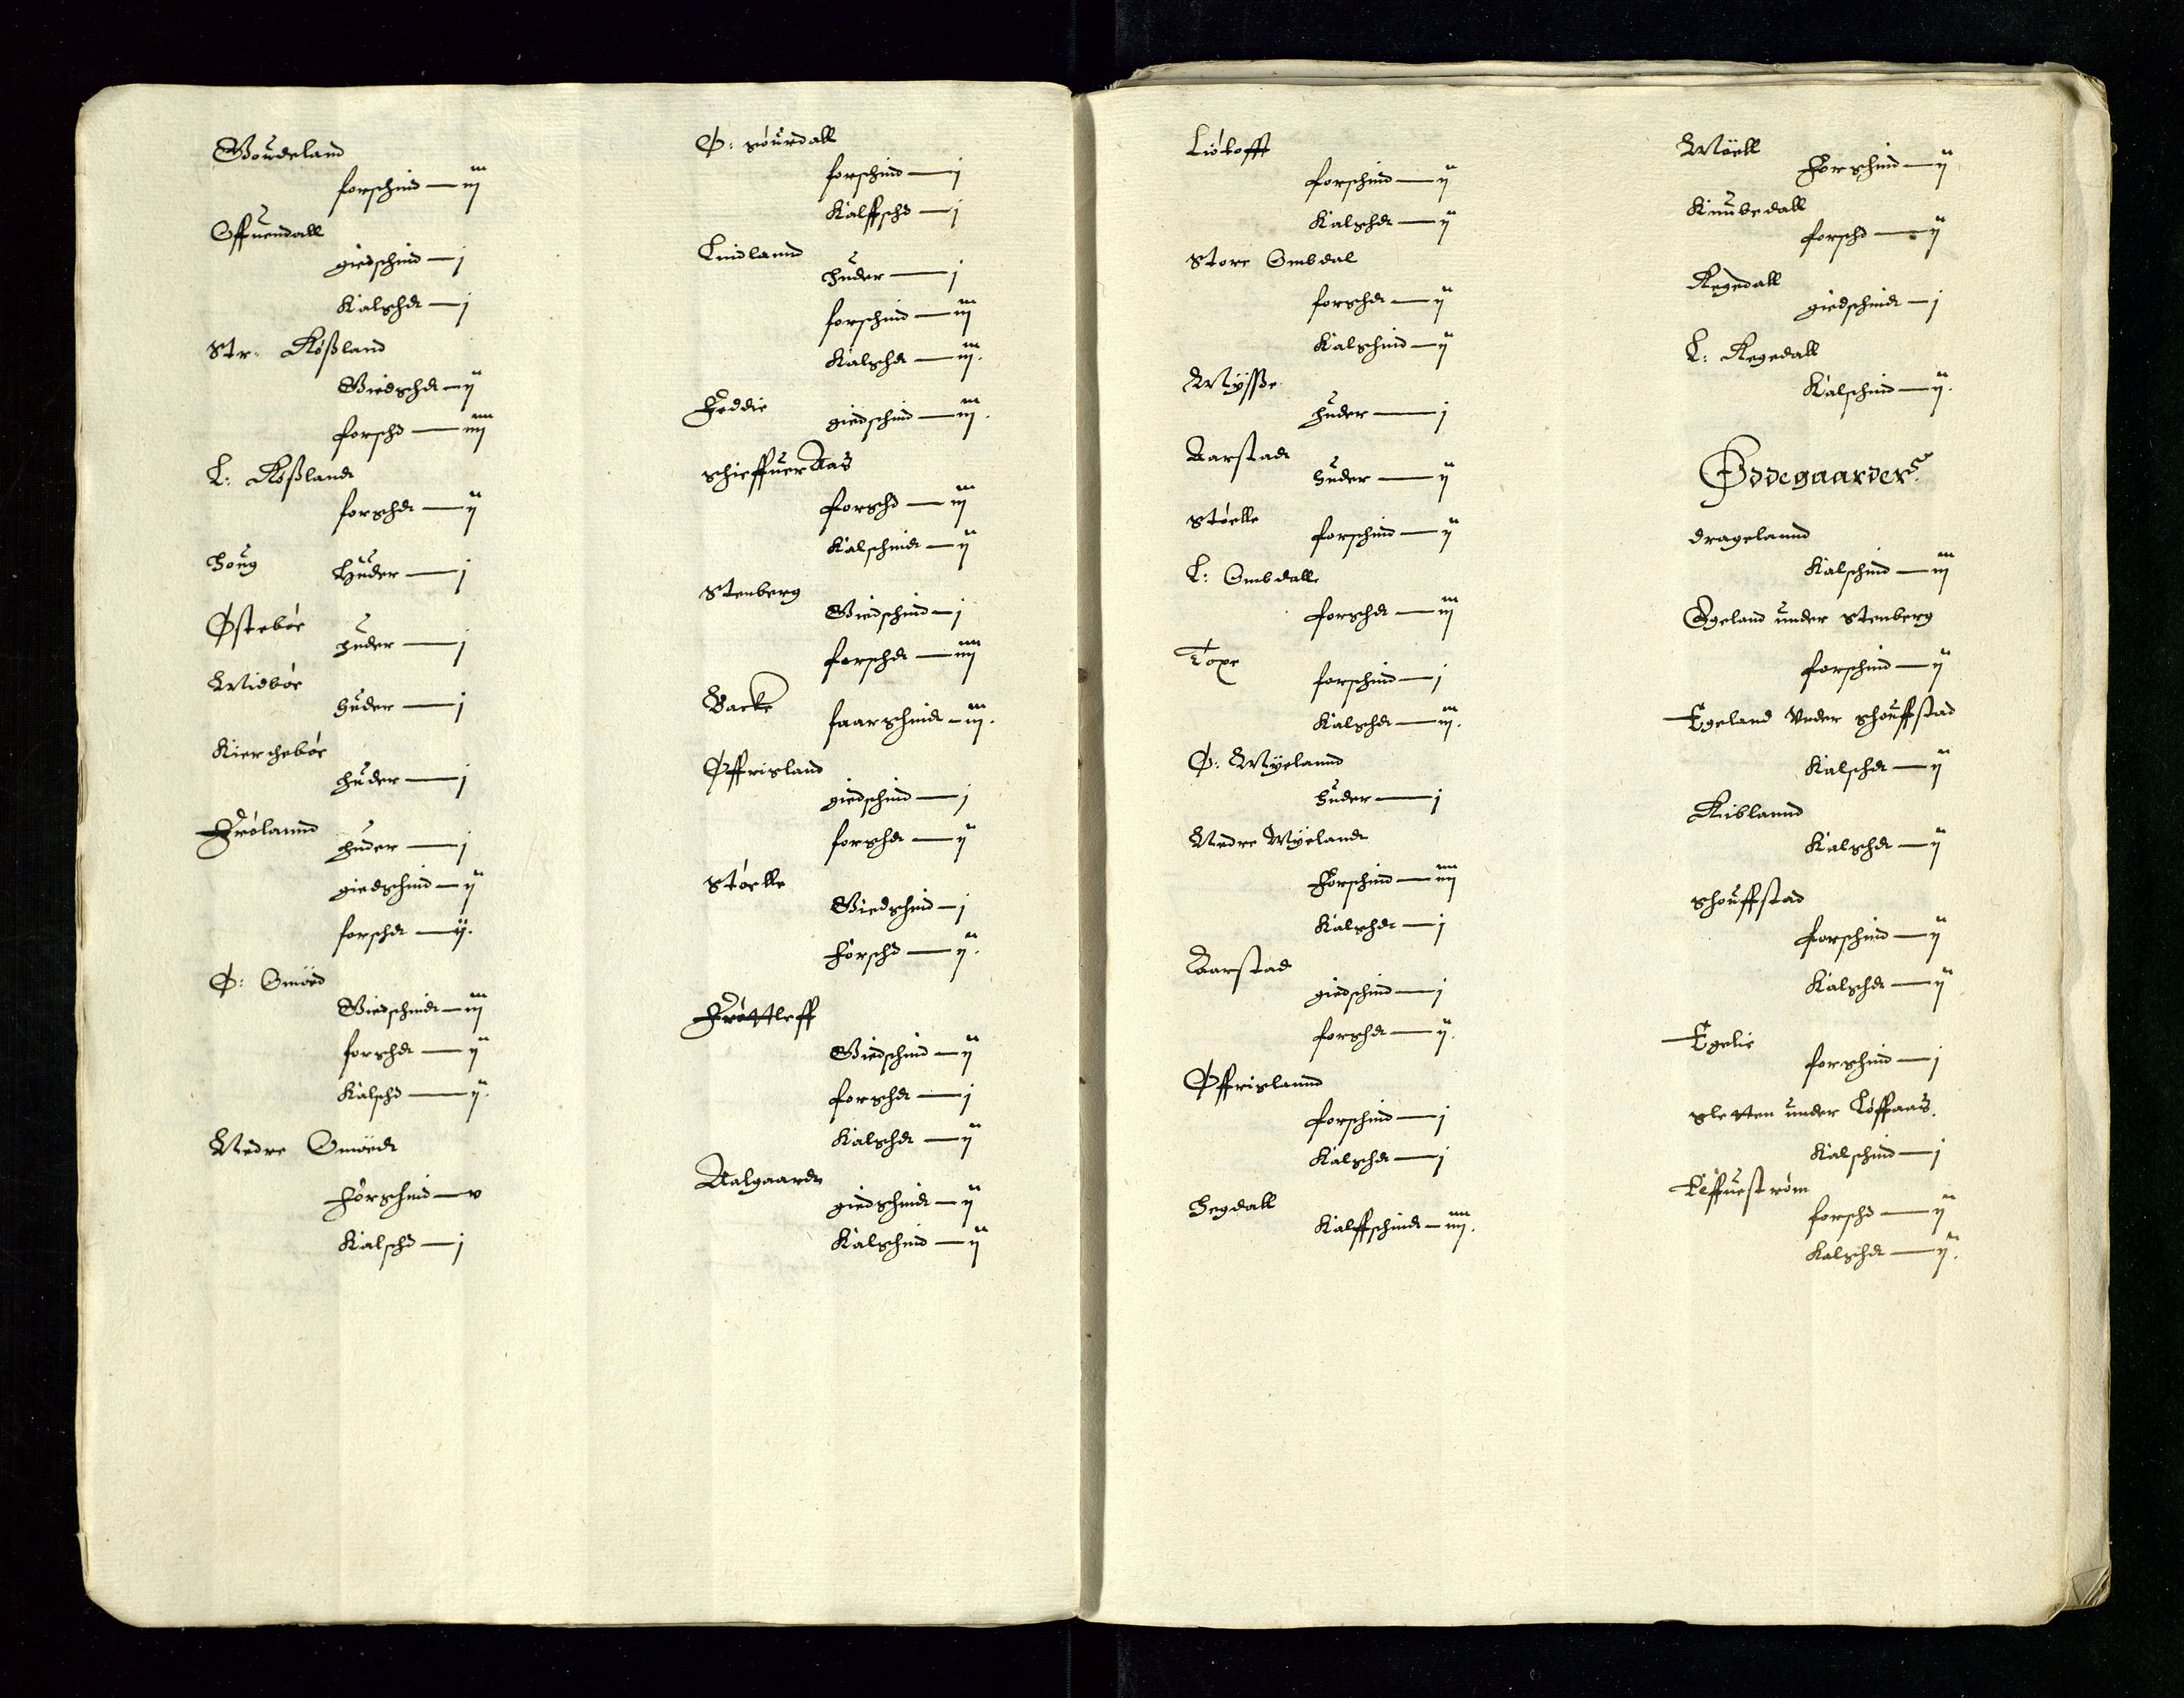 Goudeland
forschind — iij
Offuendall
giedschind — j
Kalschd — j
Str: Røßland
Giedschd — ij
forschd — iiij
L: Røßland
forschd — ij
Houg
Huder — j
Østebøe
huder — j
Midbøe
huder — j
Kierchebøe
huder — j
Frøland
huder — j
giedschind — ij
forschd — ij.
Ø: Omøed
Giedschind — iij
forschd — ij
Kalschd — ij.
Nedre Omøed
Forschind — v
Kalschd — j
Ø: sourdall
forschind — j
Kalffschd — j
Lindlannd
huder — j
forschind — iij
Kalschd — iij.
Feddie
giedschind — iij.
schieffuer Aas
forschd — iij
Kalschind — ij
Stenberg
Giedschind — j
forschd — iiij
Backe
faarschind — iij.
Øffrisland
giedschind — j
forschd — ij
Støelle
Giedschind — j
Forschd — ij.
Frøttleff
Giedschind — ij
forschd — j
Kalschd — ij
Aalgaard
giedschind — ij
Kalschind — ij
Liøtofft
forschind — ij
Kalschd — ij
Store Ombdal
forschd — ij
Kalschind — ij
Mysse
huder — j
Aarstad
huder — ij
Støelle
forschind — ij
L: Ombdall
forschd — iij
Toxe
forschind — j
Kalschd — iij.
Ø: Myelannd
huder — j
Nedre Myeland
Forschind — iiij
Kalschd — j
Aarstad
giedschind — j
forschd — ij.
Øffrislannd
forschind — j
Kalschd — j
Hegdall
Kalffschind — iiij.
Møell
Forschind — ij
Knubedall
forschd — ij
Regedall
giedschind — j
L: Regedall
Kalschind — ij.
Ødegaarder
dragelannd
Kalschind — iij
Egeland under Stenberg
forschind — ij
Egeland Under schouffstad
Kalschd — ij
Riblannd
Kalschd — ij
schouffstad
forschind — ij
Kalschd — ij
Egelie
forschind — j
sletten under Løffaas.
Kalschind — j
Eeffuestrøm
forschd — ij
Kalschd — ij.